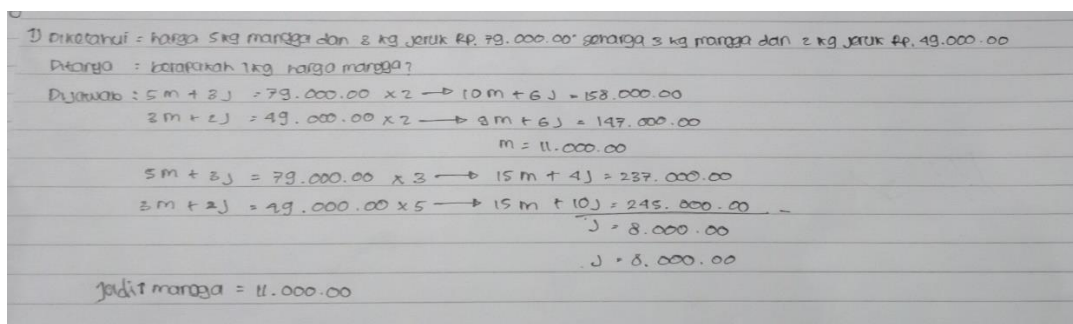 1) Diketahui = harga 5 kg mangga dan 3 kg jeruk Rp. 79.000.00 seharga 3 kg mangga dan 2 kg jeruk Rp. 49.000.00
Ditanya : berapakah 1 kg harga mangga?
Dijawab : 5m + 3j = 79.000.00 x 2 → 10m + 6j = 158.000.00
3m + 2j = 49.000.00 x 2 → 9m + 6j = 147.000.00
m = 11.000.00
5m + 3j = 79.000.00 x 3 → 15m + 4j = 237.000.00
3m + 2j = 49.000.00 x 5 → 15m + 10j = 245.000.00 -
j = 8.000.00
j = 8.000.00
Jadi mangga = 11.000.00